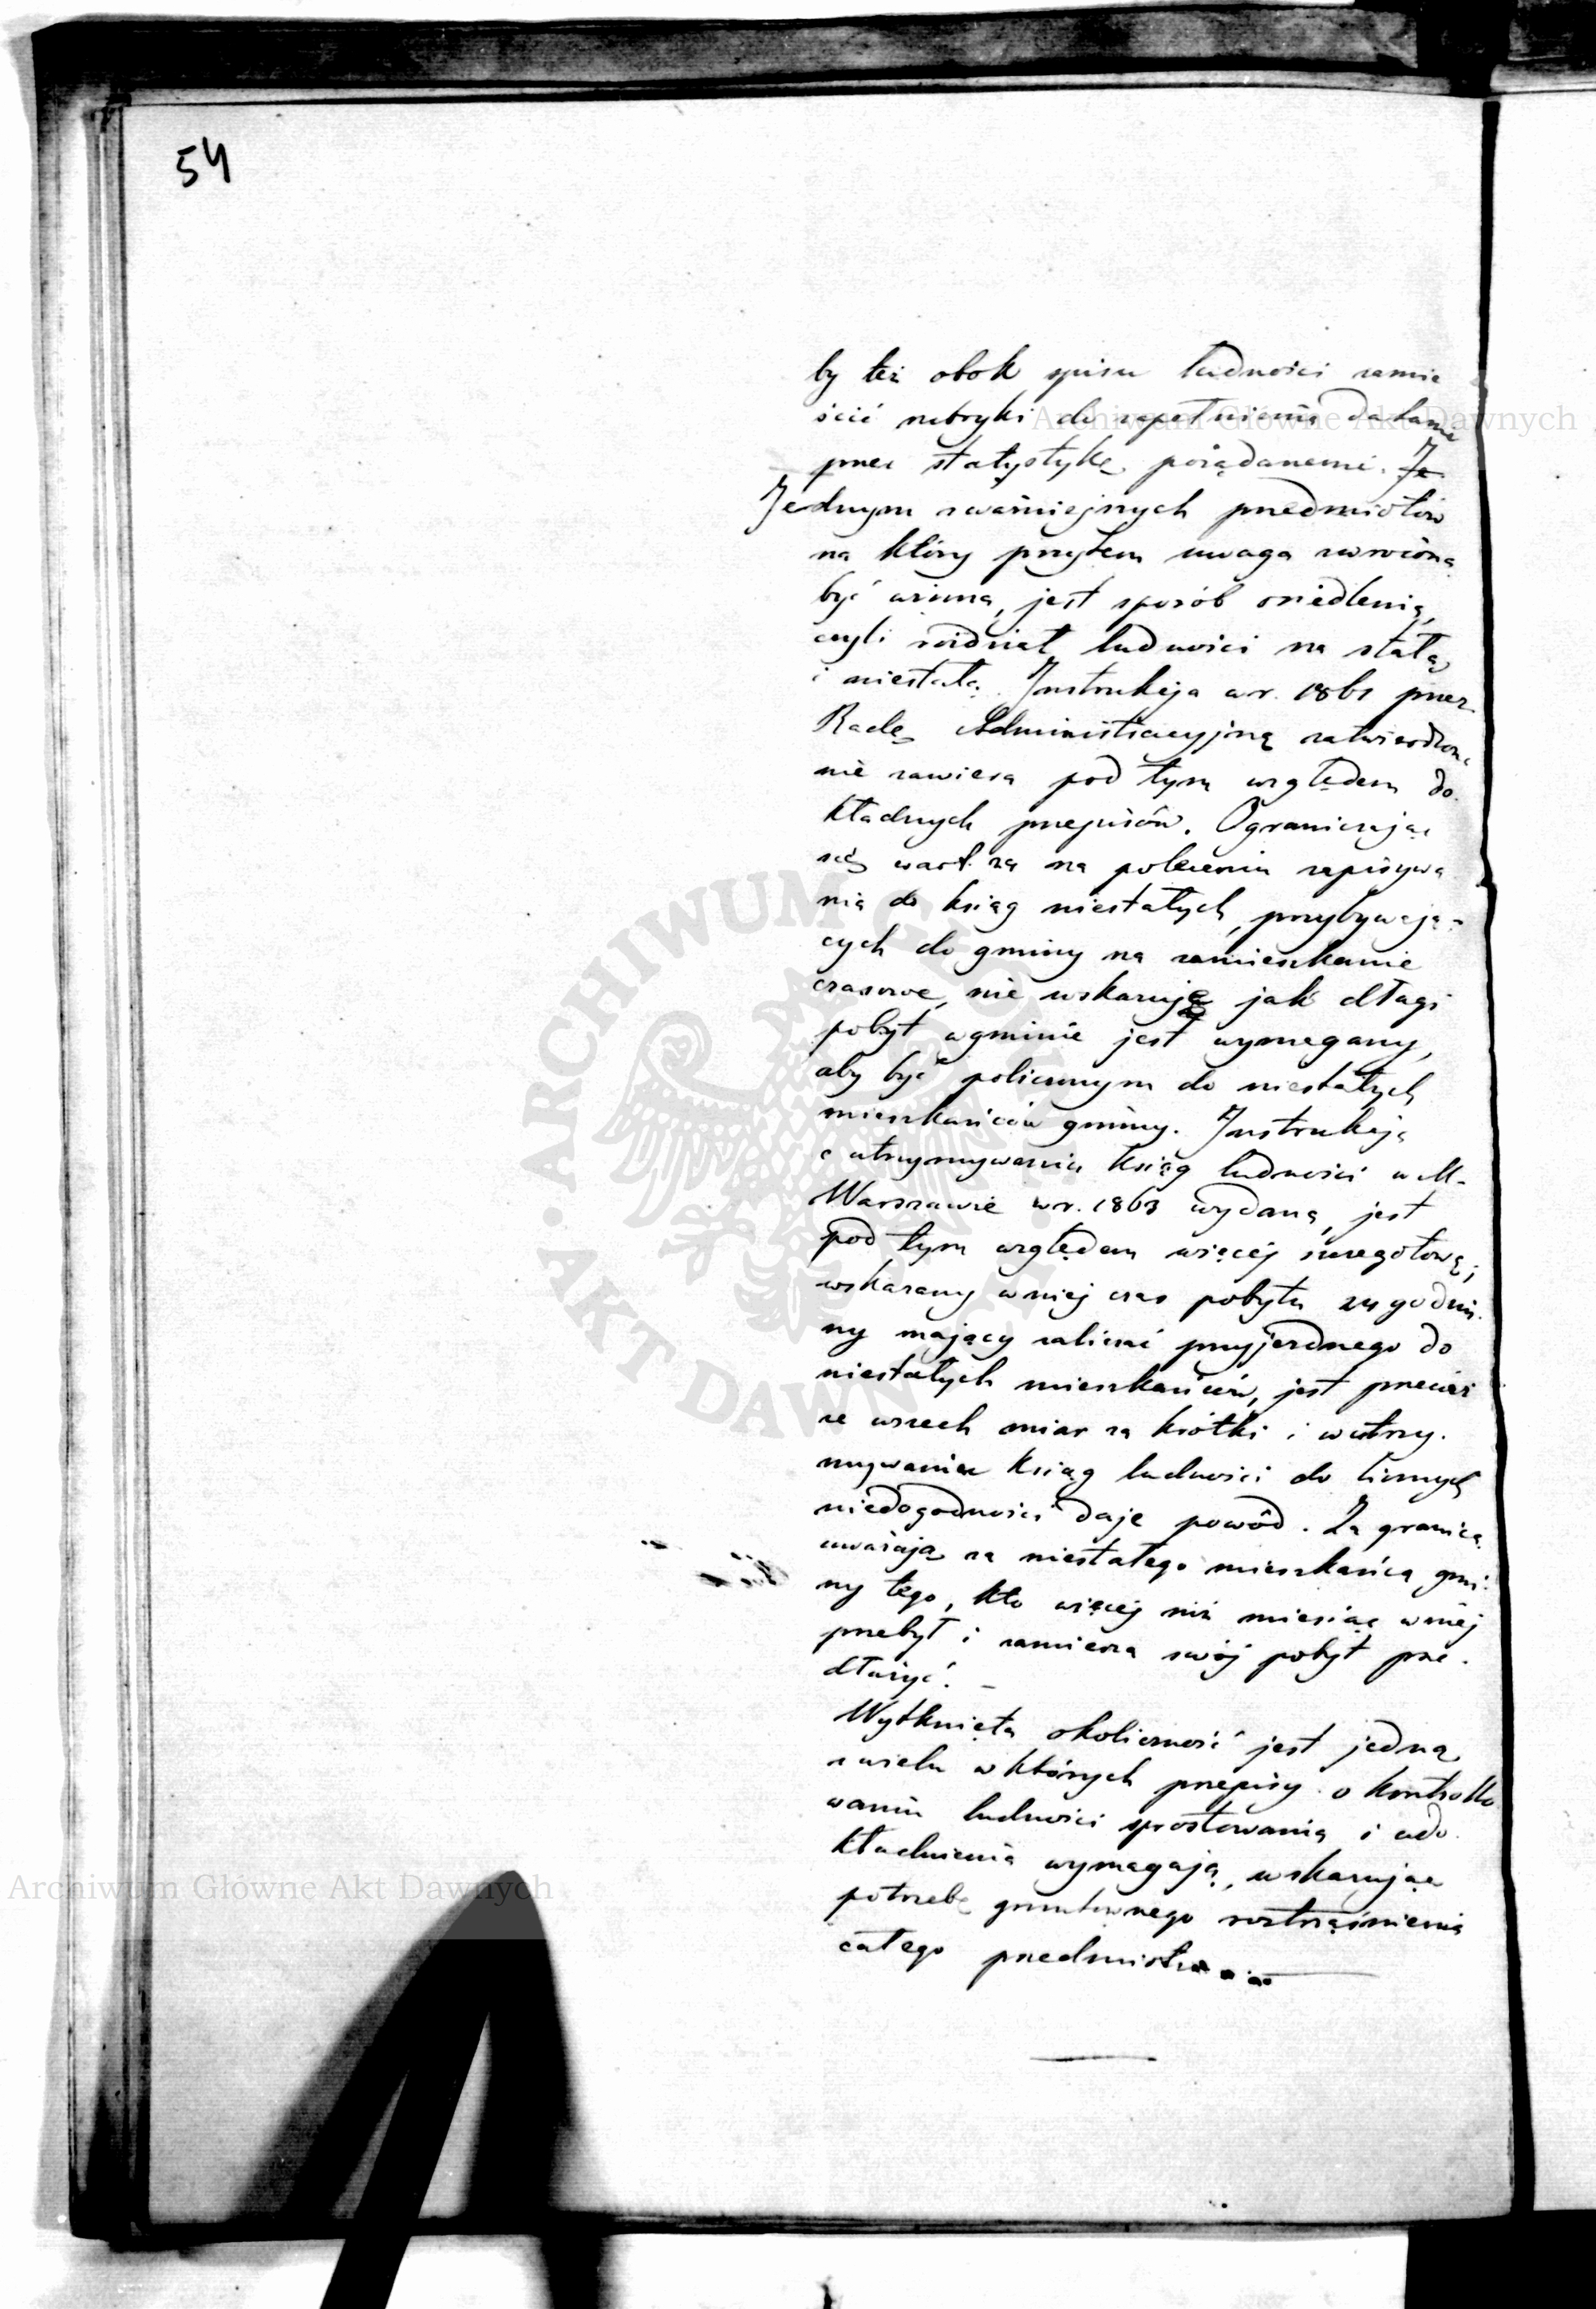 54
by też obok spisu ludności zamie
ścić rubryki do zapełnienia datami
przez statystykę pożądanemi. Je
Jednym z ważniejszych przedmiotów
na który przytem uwaga zwróconą
być winna, jest sposób osiedlenia,
czyli rozdział ludności na stałą
i niestałą. Instrukcja w r. 1861 przez
Radę Administracyjną zatwierdzona
nie zawiera pod tym względem do-
kładnych przepisów. Ograniczając
się na poleceniu zapisywa
nia do ksiąg niestałych, przybywają-
cych do gminy na zamieszkanie
czasowe, nie wskazuje jak długi
pobyt w gminie jest wymagany,
aby być policzonym do niestałych
mieszkańców gminy. Instrukcja
o utrzymywaniu ksiąg ludności w M.
Warszawie w r. 1863 wydana, jest
pod tym względem więcej szczegółową;
wskazany w niej czas pobytu 24 godzi-
ny mający zaliczać przyjezdnego do
niestałych mieszkańców, jest przecież
ze wszech miar za krótki i w utrzy-
mywaniu ksiąg ludności do licznych
niedogodności daje powód. Za granicą
uważają za niestałego mieszkańca gmi-
ny tego, kto więcej niż miesiąc w niej
przebył i zamierza swój pobyt prze-
dłużyć. –
Wytknięta okoliczność jest jedną
z wielu w których przepisy o kontrollo
waniu ludności sprostowania i udo-
kładnienia wymagają, wskazując
potrzebę gruntownego roztrząśnienia
całego przedmiotu
Archiwum Główne Akt Dawnych
Archiwum Główne Akt Dawnych
ARCHIWUM GŁÓWNE · AKT DAWNYCH ·